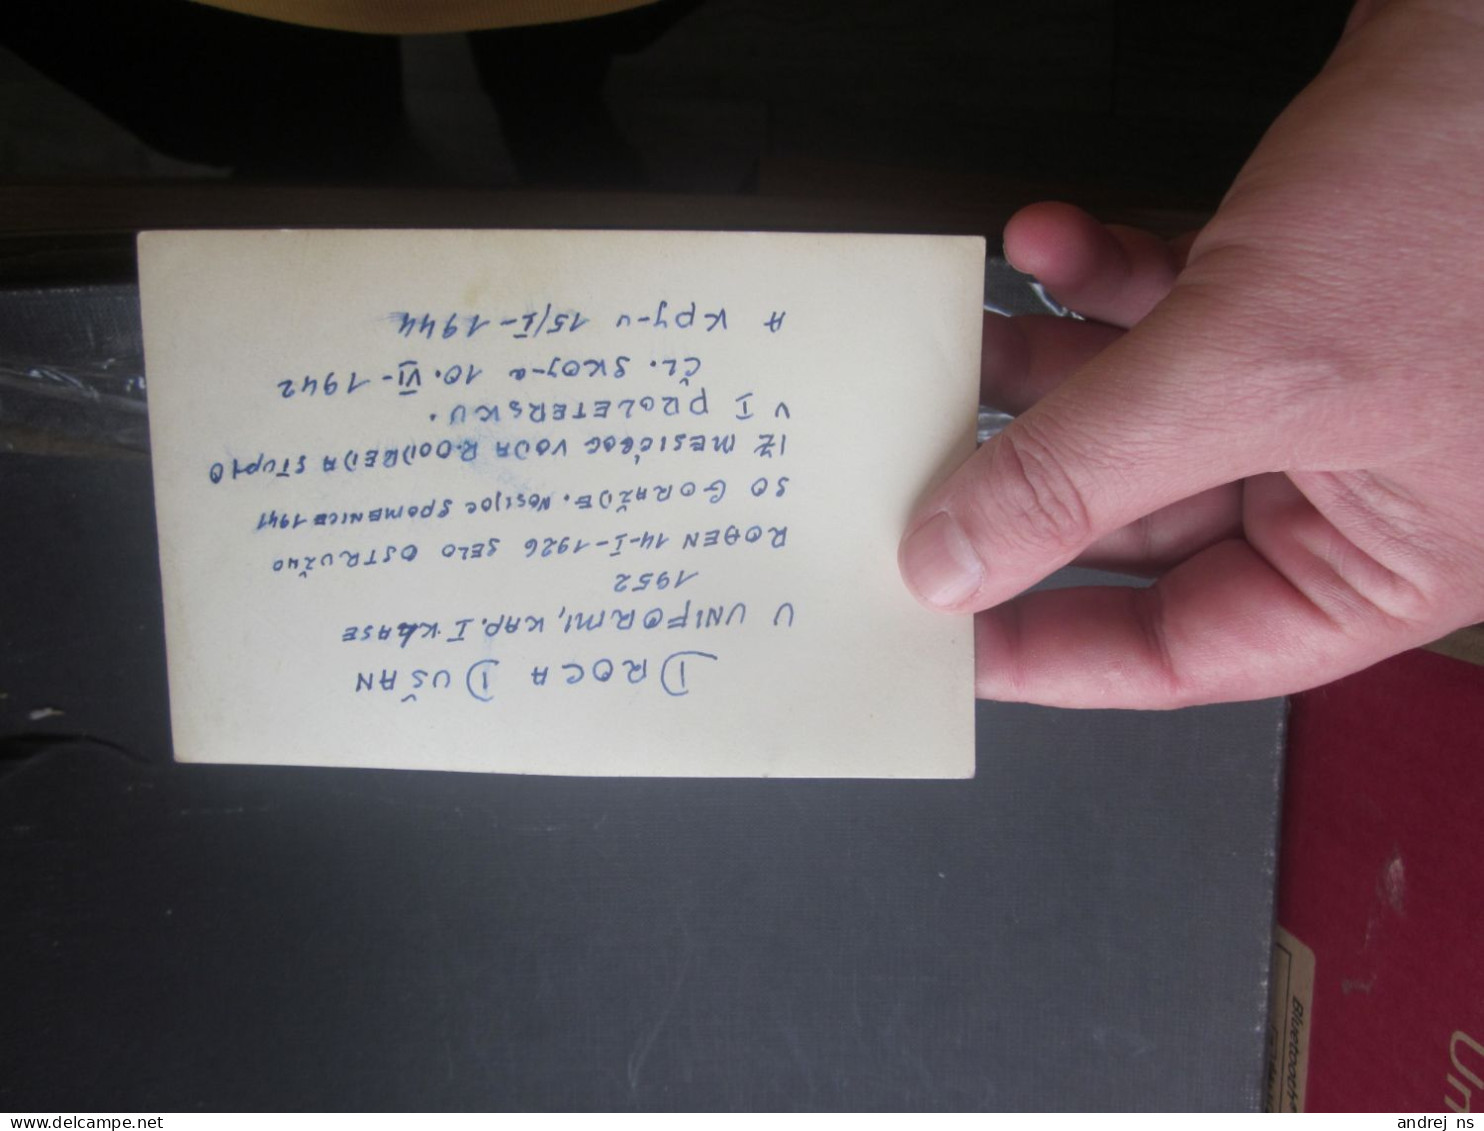 DROCA DUŠAN
U UNIFORMI, KAP. I KLASE
1952
ROĐEN 14-I-1926 SELO OSTRUŽNO
SO GORAŽDE. NOSIJOC SPOMENICE 1941
IZ MESIĆBOG VODA R.ODREDA STUPIO
V I PROLETERSKU.
ČL. SKOJ-a 10. VI-1942
A KPJ-u 15/I-1944
Bluetooth
Un
andrej_ns